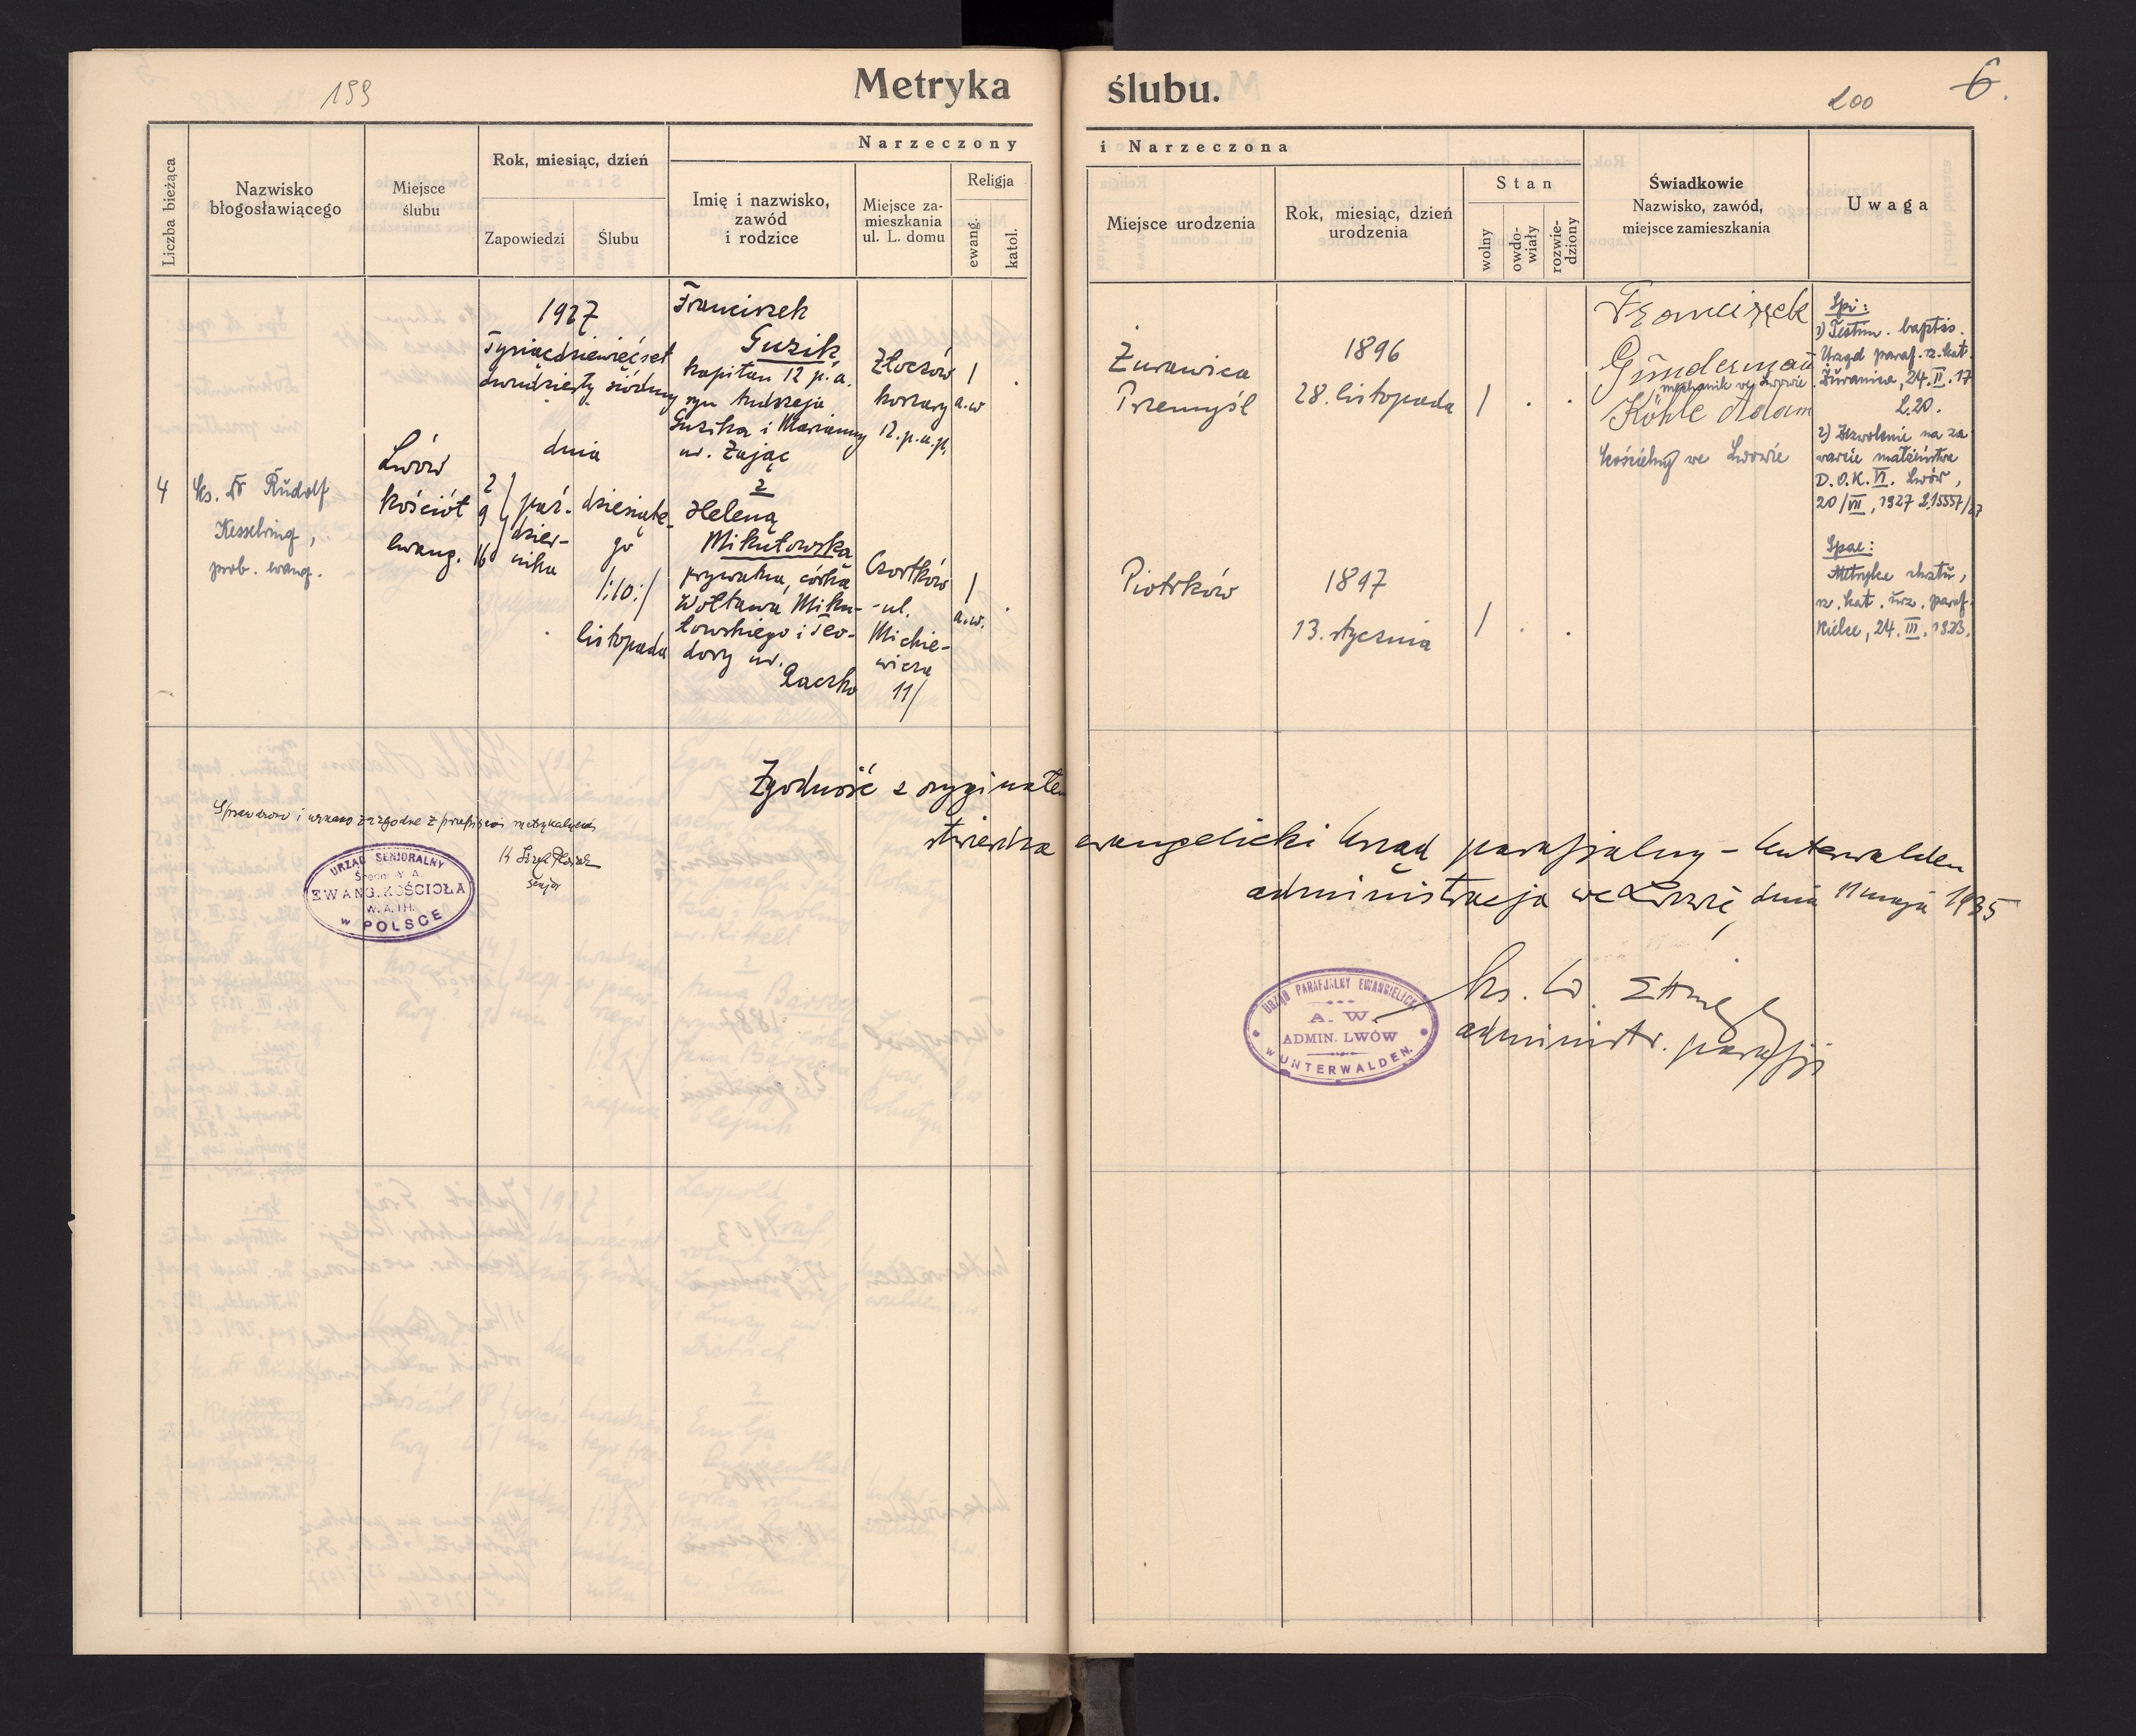 199
Metryka ślubu.
200
6.
Liczba bieżąca
Nazwisko
błogosławiącego
Miejsce
ślubu
Rok, miesiąc, dzień
Zapowiedzi
Ślubu
Narzeczony i Narzeczona
Imię i nazwisko,
zawód
i rodzice
Miejsce za-
mieszkania
ul. L. domu
Religja
ewang.
katol.
Miejsce urodzenia
Rok, miesiąc, dzień
urodzenia
Stan
wolny
owdo-
wiały
rozwie-
dziony
Świadkowie
Nazwisko, zawód,
miejsce zamieszkania
Uwaga
4
ks. Dr Rudolf
Kesselring,
prob. ewang.
Lwów
kościół
ewang.
1927
Tysiącdziewięćset
dwudziesty siódmy
dnia
2
9
16
paź-
dzier-
nika
dziesiąte-
go
/:10:/
listopada
Franciszek
Guzik
kapitan 12 p. a.
syn Andrzeja
Guzika i Marianny
ur. Zając
z
Heleną
Mikułowską
prywatna, córka
Miku-
łowskiego i Teo-
dory ur.
Raczko
Złoczów
koszary
12. p. a. p.
Czortków
-ul.
Mickie-
wicza
11/
1
a.w
1
a.w.
Żurawica
Przemyśl
Piotrków
1896
28. listopada
1897
13. stycznia
1 . .
1 . .
Franciszek
Gündermań
mechanik we Lwowie
Köhle Adam
kościelny we Lwowie
Spi:
1) Testim. baptis.
Urząd paraf. rz. kat.
Żurawica, 24. II. 17
L. 20.
2) Zezwolenie na za
warcie małżeństwa
D.O.K. VI. Lwów,
20/VII, 1927 L15557/27
Spae:
Metryka chrztu,
rz. kat. urz. paraf.
Kielce, 24. III. 1923.
Zgodność z oryginałem
stwierdza ewangelicki Urząd parafjalny - Unterwalden
administracja we Lwowie, dnia 11 maja 1935
Sprawdzono i uznano za zgodne z przepisami metrykalnemi
senjor
URZĄD SENJORALNY
EWANG. KOŚCIOŁA
W. A. i H.
w POLSCE
URZĄD PARAFJALNY EWANGIELICKI
A. W.
ADMIN. LWÓW
w UNTERWALDEN.
ks. W.
administr. parafji